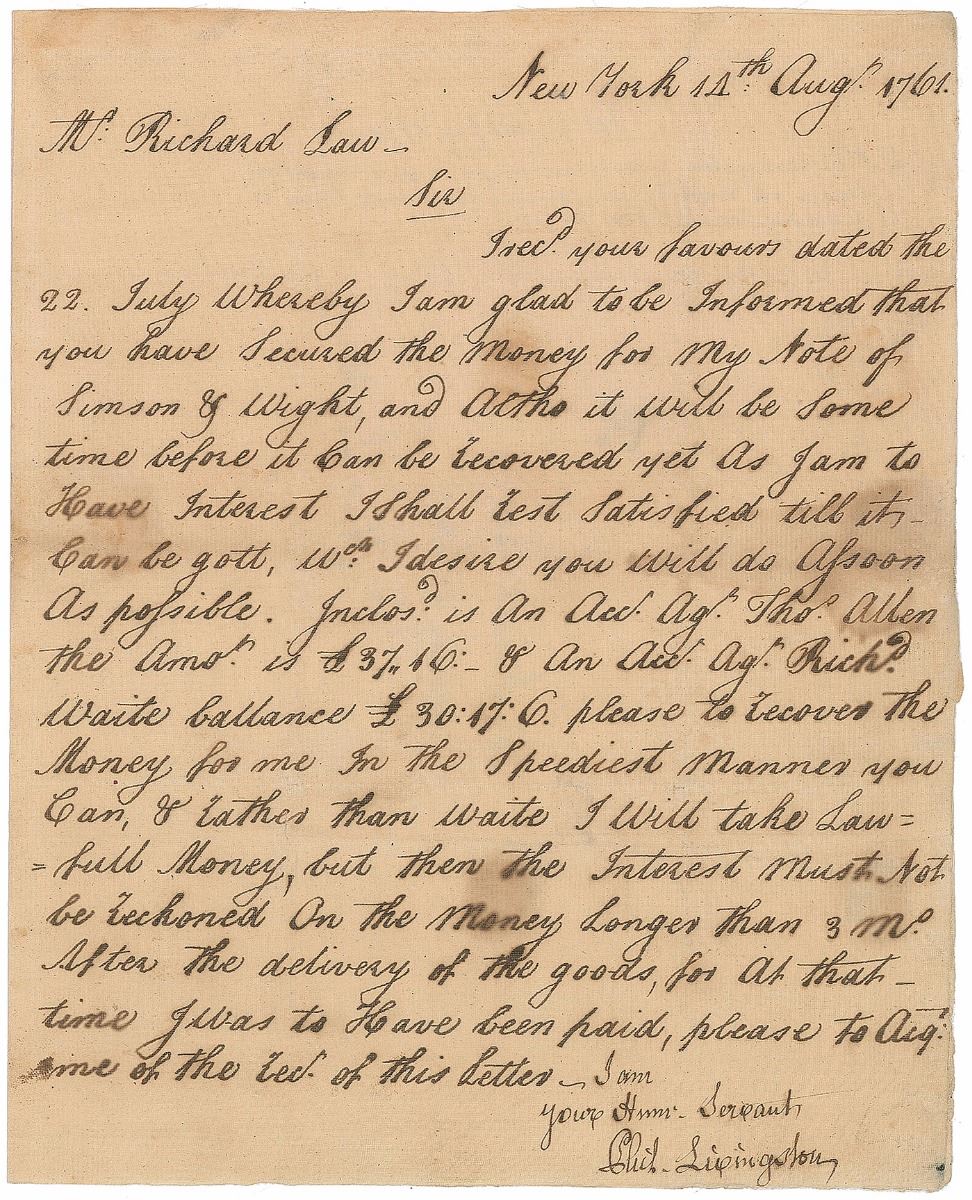 New York 14th Augt. 1761.
Mr. Richard Law _
Sir
I recd. your favours dated the
22. July Whereby I am glad to be Informed that
you have Secured the Money for My Note of
Simson & Wight, and Altho it will be Some
time before it Can be recovered yet As I am to
Have Interest I Shall rest Satisfied till it _
Can be gott, wch. I desire you Will do Assoon
As possible. Inclosd. is An Acct. Agt. Thos. Allen
the Amot. is £37,,16:_ & An Acct. Agt. Richd.
Waite ballance £30:17:6. please to recover the
Money for me In the Speediest Manner you
Can, & rather than Waite I Will take Law=
=full Money, but then the Interest Must Not
be reckoned On the Money Longer than 3 mo.
After the delivery of the goods, for At that _
time I was to Have been paid, please to Acqt.
me of the rect. of this Letter _ I am
your Humr. Servant,
Phil. Livingston,